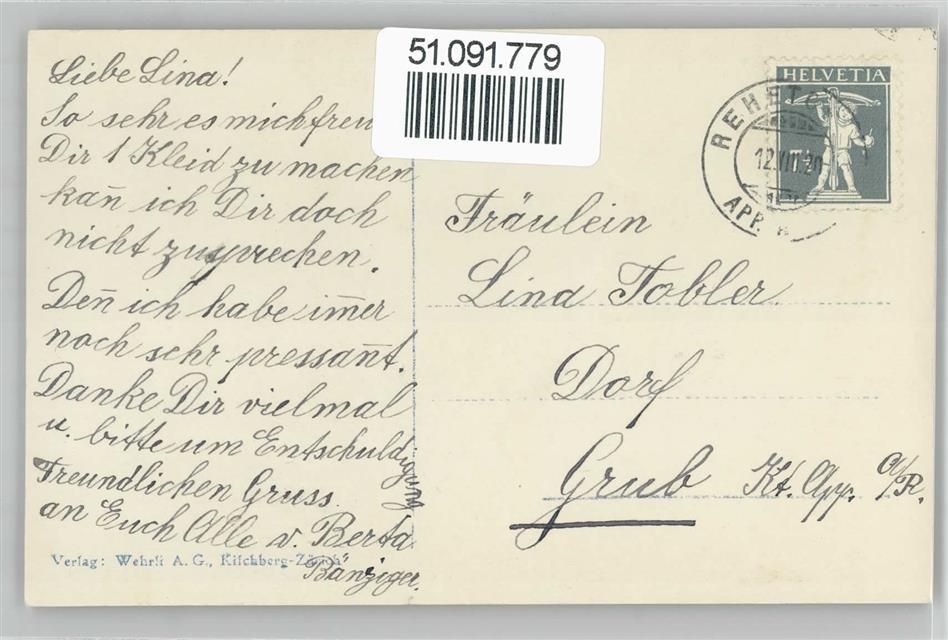 51.091.779
Liebe Lina!
So sehr es mich freu
Dir 1 Kleid zu machen
kan̄ ich Dir doch
nicht zusprechen.
Den̄ ich habe im̄er
noch sehr pressan̄t.
Danke Dir vielmal
u. bitte um Entschuldigung
Freundlichen Gruss.
an Euch Alle v. Berta
Bänziger.
Verlag: Wehrli A. G., Kilchberg-Zürich
HELVETIA
REHETO
12.VIII.20
APP.
Fräulein
Lina Tobler.
Dorf
Grub Kt. App. a/R.